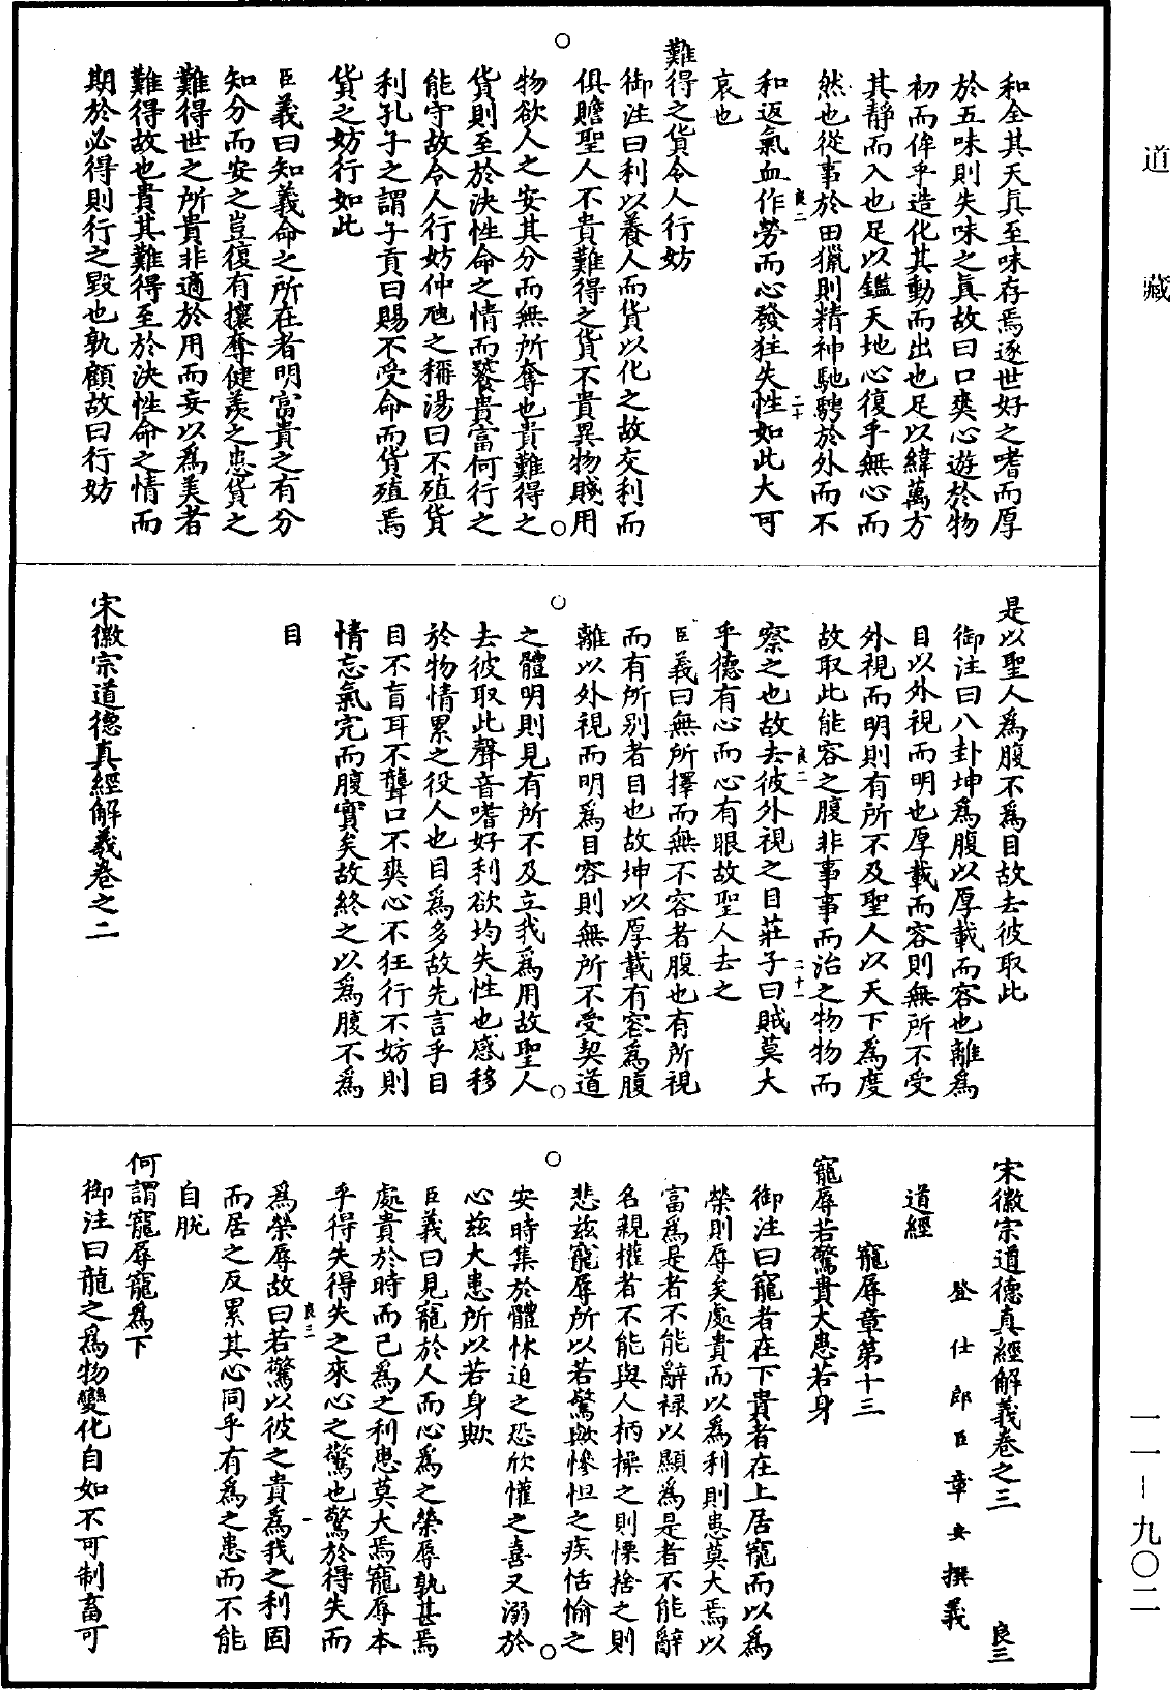 道藏
和全其天真至味存焉逐世好之嗜而厚
於五味則失味之真故曰口爽心遊於物
初而侔乎造化其動而出也足以緯萬方
其靜而入也足以鑑天地心復乎無心而
然也從事於田獵則精神馳騁於外而不
良二 二十
和返氣血作勞而心發狂失性如此大可
哀也
難得之貨令人行妨
御注曰利以養人而貨以化之故交利而
俱贍聖人不貴難得之貨不貴異物賤用
物欲人之安其分而無所奪也貴難得之
貨則至於決性命之情而饕貴富何行之
能守故令人行妨仲虺之稱湯曰不殖貨
利孔子之謂子貢曰賜不受命而貨殖焉
貨之妨行如此
臣義曰知義命之所在者明富貴之有分
知分而安之豈復有攘奪健羨之患貨之
難得世之所貴非適於用而妄以為美者
難得故也貴其難得至於決性命之情而
期於必得則行之毀也孰顧故曰行妨
是以聖人為腹不為目故去彼取此
御注曰八卦坤為腹以厚載而容也離為
目以外視而明也厚載而容則無所不受
外視而明則有所不及聖人以天下為度
故取此能容之腹非事事而治之物物而
良二 二十一
察之也故去彼外視之目莊子曰賊莫大
乎德有心而心有眼故聖人去之
臣義曰無所擇而無不容者腹也有所視
而有所別者目也故坤以厚載有容為腹
離以外視而明為目容則無所不受契道
之體明則見有所不及立我為用故聖人
去彼取此聲音嗜好利欲均失性也感移
於物情累之役人也目為多故先言乎目
目不盲耳不聾口不爽心不狂行不妨則
情忘氣完而腹實矣故終之以為腹不為
目
宋徽宗道德真經解義卷之二
宋徽宗道德真經解義卷之三 良三
登仕郎臣章安撰義
道經
寵辱章第十三
寵辱若驚貴大患若身
御注曰寵者在下貴者在上居寵而以為
榮則辱矣處貴而以為利則患莫大焉以
富為是者不能辭祿以顯為是者不能辭
名親權者不能與人柄操之則慄捨之則
悲茲寵辱所以若驚歟慘怛之疾恬愉之
安時集於體怵迫之恐欣懽之喜又溺於
心茲大患所以若身歟
臣義曰見寵於人而心為之榮辱孰甚焉
處貴於時而己為之利患莫大焉寵辱本
乎得失得失之來心之驚也驚於得失而
良三 一
為榮辱故曰若驚以彼之貴為我之利固
而居之反累其心同乎有為之患而不能
自脫
何謂寵辱寵為下
御注曰龍之為物變化自如不可制畜可
一一－九〇二